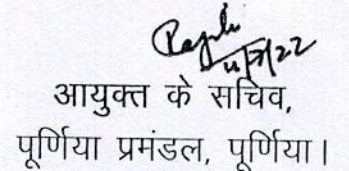 आयुक्त के सचिव,
पूर्णिया प्रमंडल, पूर्णिया।